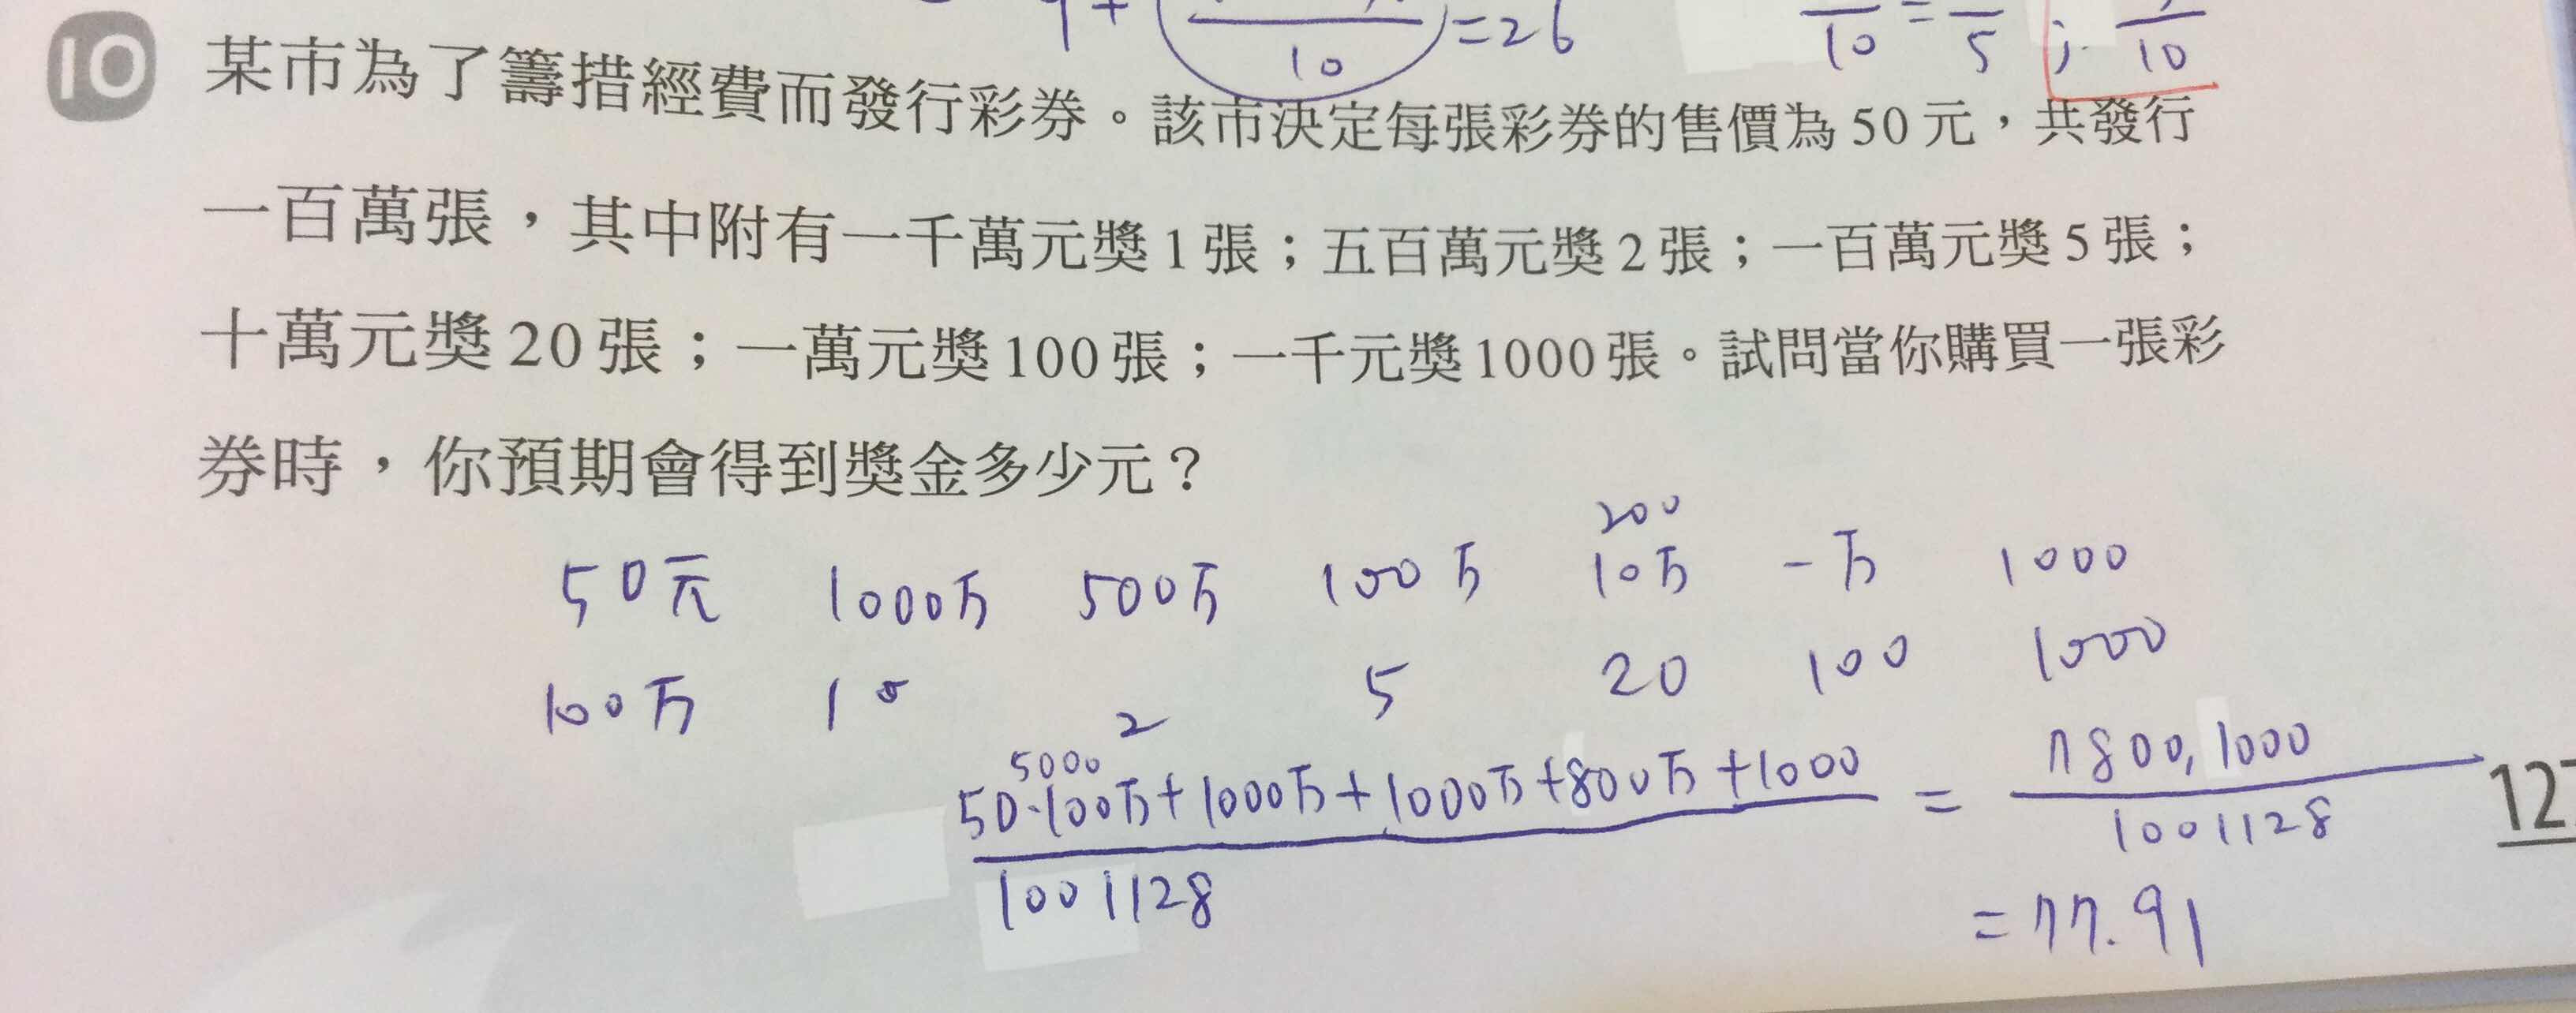 9+ 10 =26
10 = 5 ; 10
10 某市為了籌措經費而發行彩券。該市決定每張彩券的售價為50元，共發行
一百萬張，其中附有一千萬元獎1張；五百萬元獎2張；一百萬元獎5張；
十萬元獎20張；一萬元獎100張；一千元獎1000張。試問當你購買一張彩
券時，你預期會得到獎金多少元？
200
50元 1000万 500万 100万 10万 一万 1000
100万 1 2 5 20 100 1000
5000
50·100万+1000万+1000万+800万+1000 = 7800,1000
1001128 1001128
=77.91
12